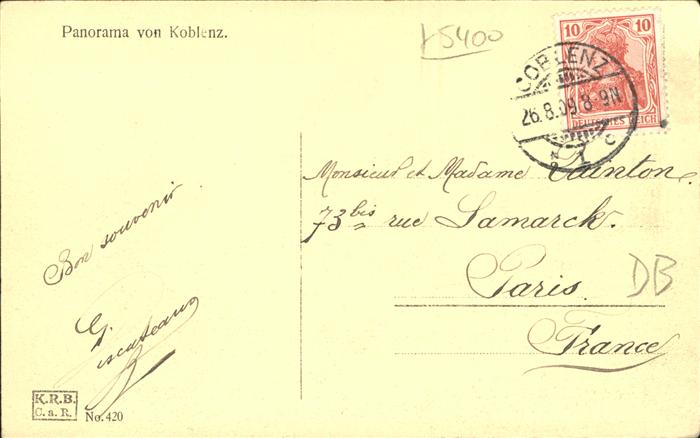 Panorama von Koblenz.
5400
10 10
DEUTSCHES REICH
COBLENZ
26.8.09.8-9N
1 c
Monsieur et Madame
73 bis rue Lamarck.
Paris.
France
DB
Bon souvenir
G.
K.R.B.
C.a.R.
No. 420